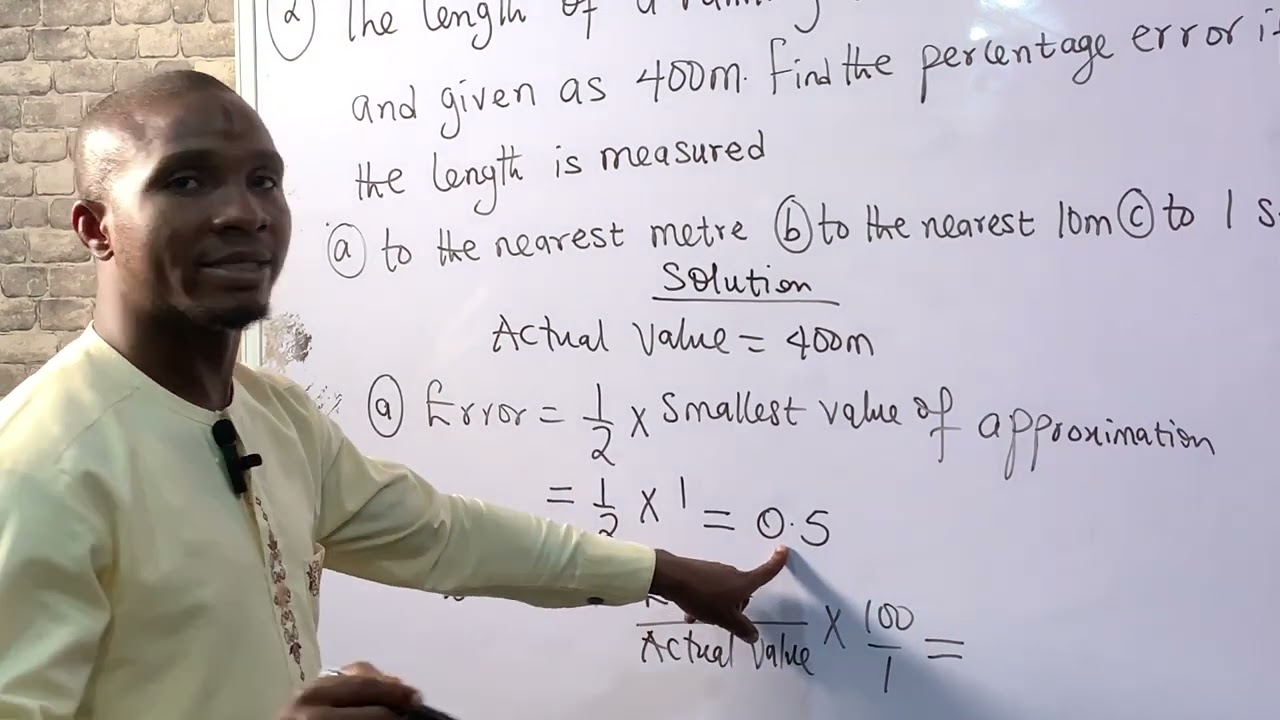 ② The length of a
and given as 400m. Find the percentage error if
the length is measured
ⓐ to the nearest metre ⓑ to the nearest 10m ⓒ to 1 s
Solution
Actual Value = 400m
ⓐ Error = 1/2 × Smallest value of approximation
= 1/2 × 1 = 0.5
/Actual Value × 100/1 =